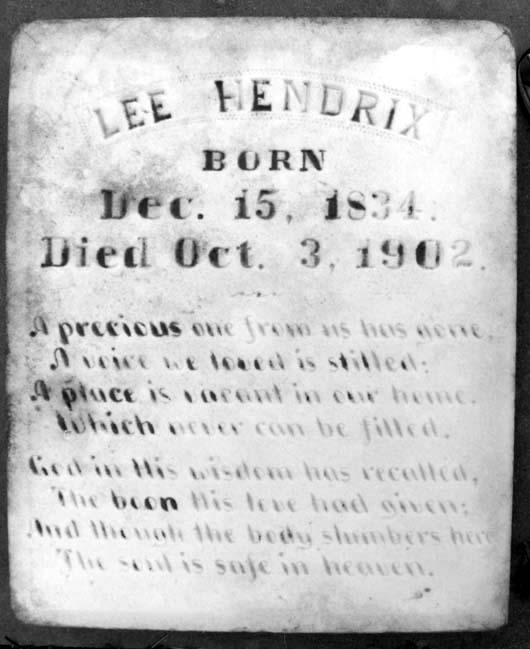 LEE HENDRIX
BORN
Dec. 15, 1834.
Died Oct. 3, 1902.
A precious one from us has gone,
A voice we loved is stilled;
A place is vacant in our home,
Which never can be filled.
God in His wisdom has recalled,
The boon His love had given;
And though the body slumbers here
The soul is safe in heaven.